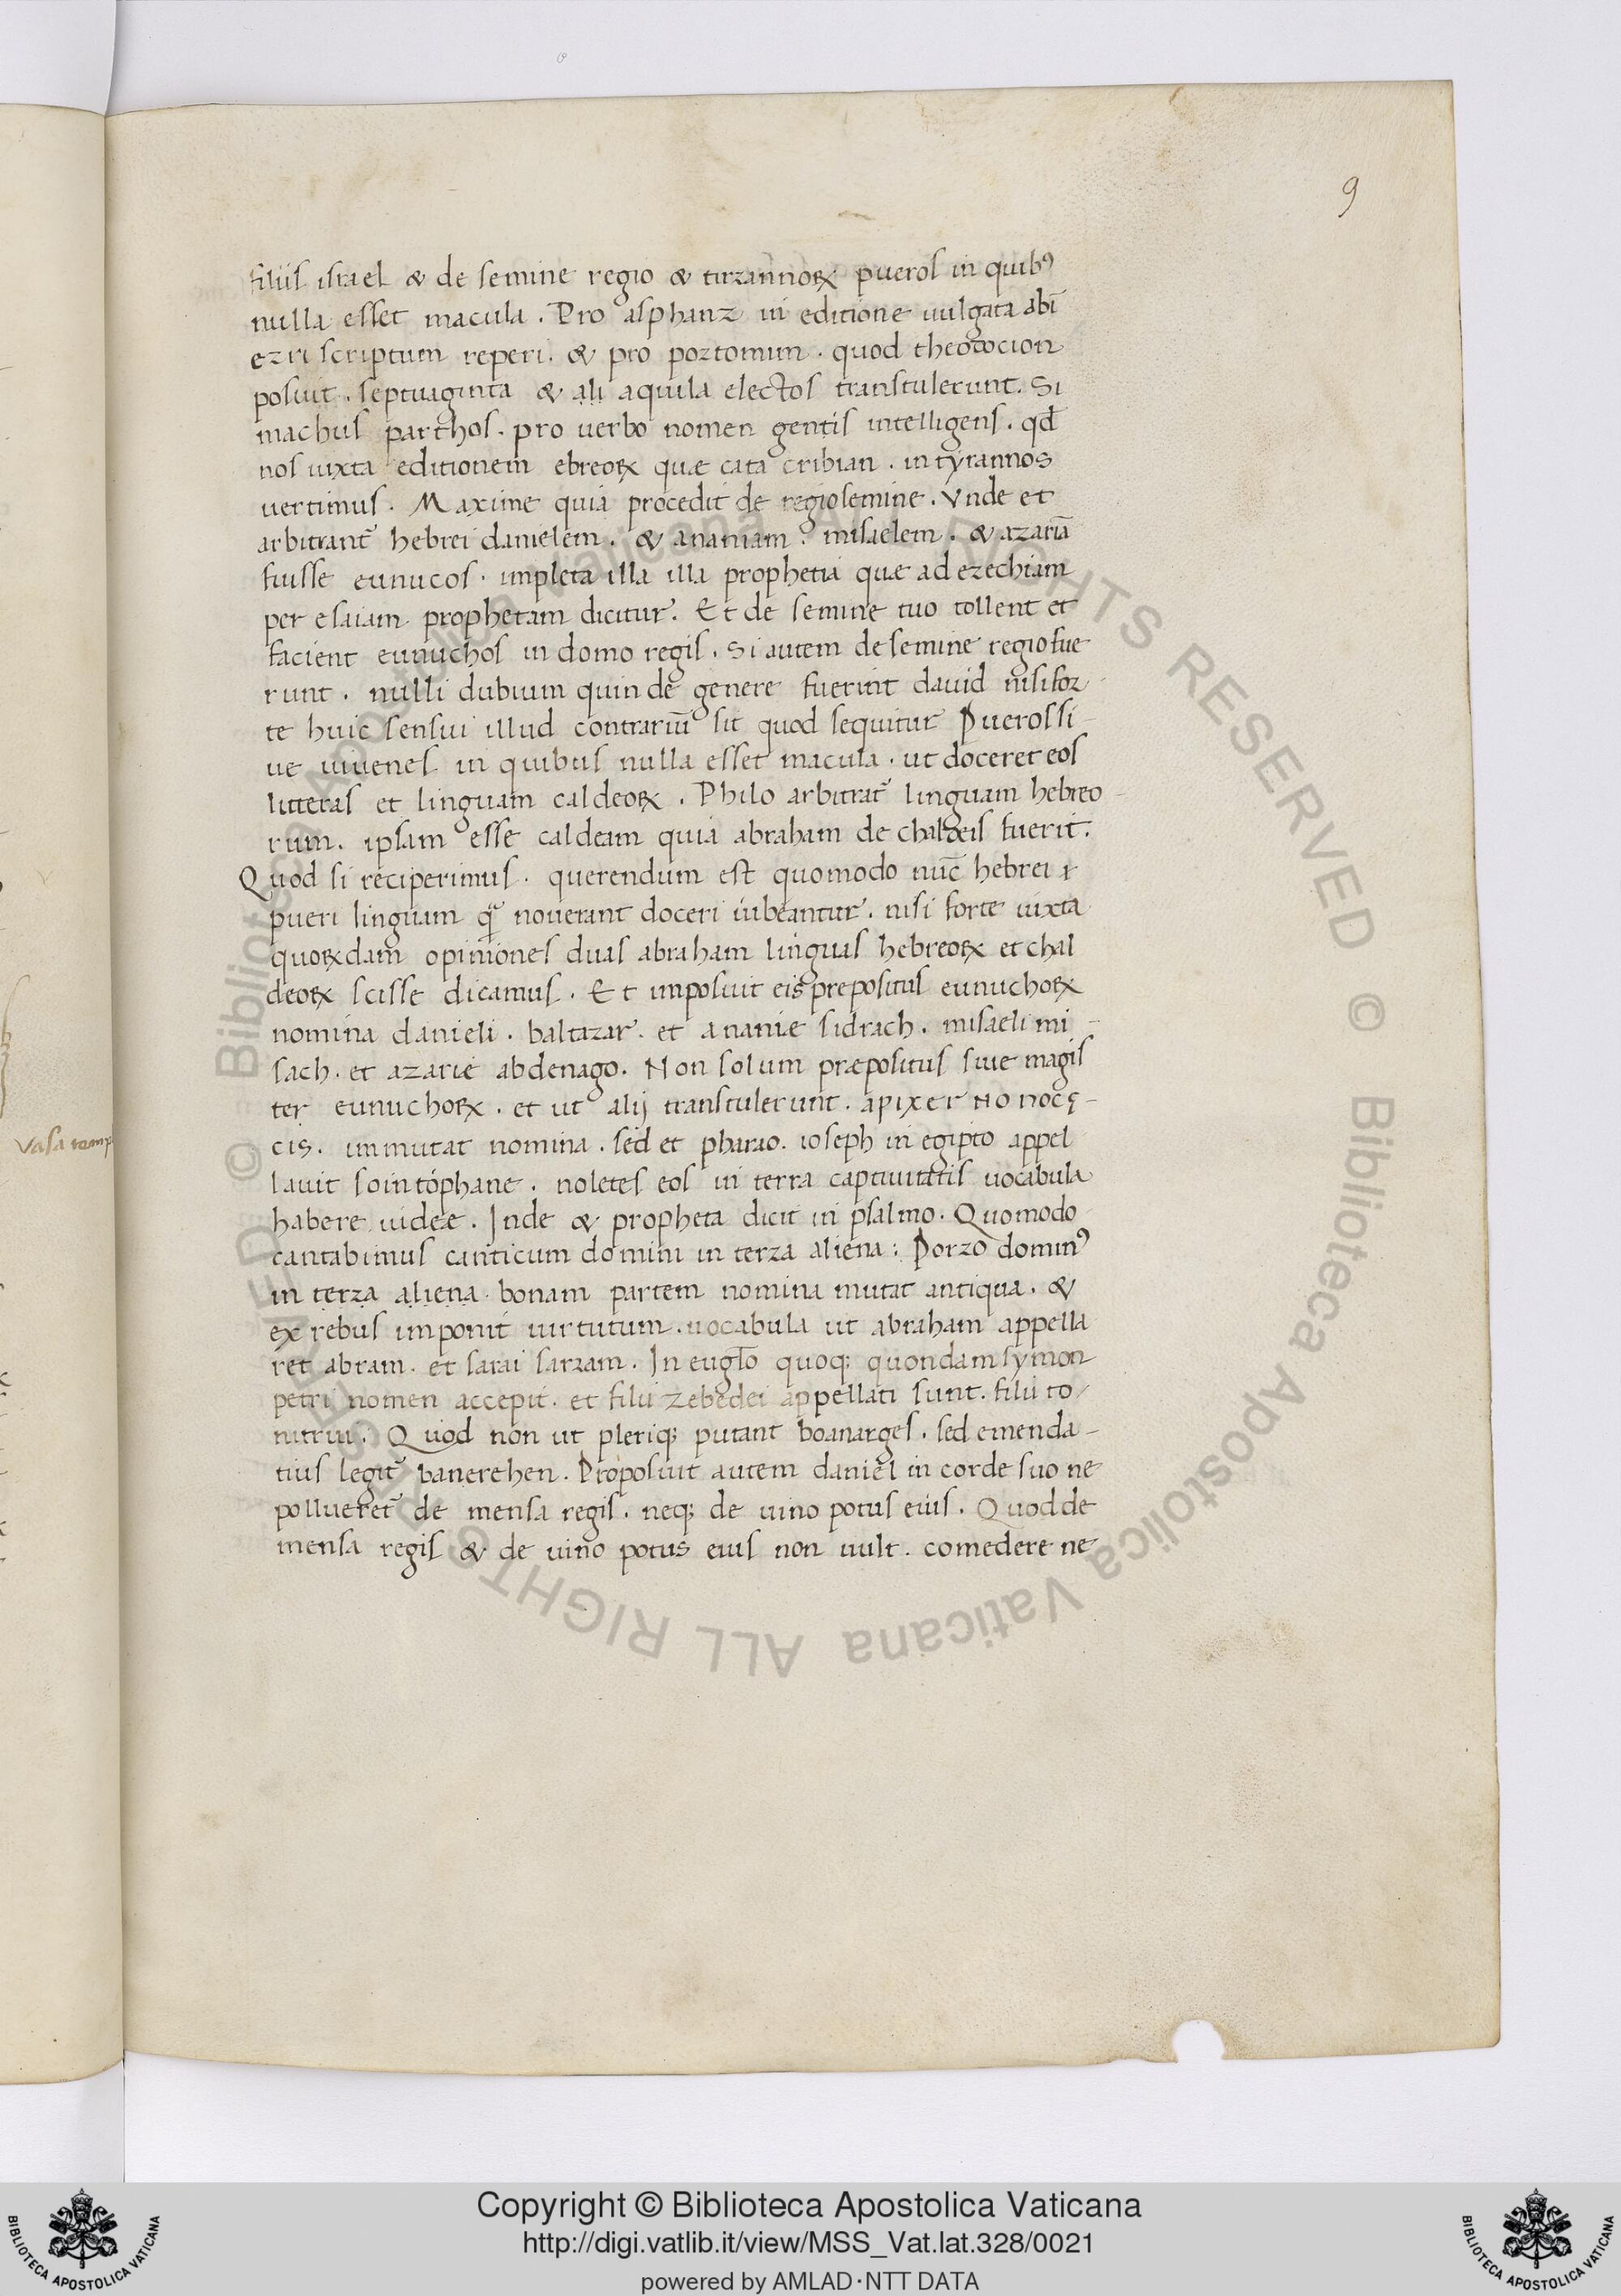 9
filiis israel & de semine regio & tirzannoꝝ pueros in quibꝰ
nulla esset macula . Pro asphanz in editione uulgata abi̅
ezri scriptum reperi . & pro poztomim . quod theotocion
posuit . septuaginta & ali aquila electos transtulerunt . Si
machus parthos . pro uerbo nomen gentis intelligens . qd̅
nos iuxta editionem ebreoꝝ quae cata cribian . in tyrannos
uertimus . Maxime quia procedit de regiosemine . Vnde et
arbitrant̃ hebrei danielem . & ananiam . misaelem . & azaria̅
fuisse eunucos . impleta illa illa prophetia quae ad ezechiam
per esaiam prophetam dicitur . Et de semine tuo tollent et
facient eunuchos in domo regis . Si autem de semine regio fue
runt . nulli dubium quin de genere fuerint dauid nisi for
te huic sensui illud contrariu̅ sit quod sequitur Pueros si-
ue iuuenes in quibus nulla esset macula . ut doceret eos
litteras et linguam caldeoꝝ . Philo arbitrat̃ linguam hebreo-
rum . ipsam esse caldeam quia abraham de chaldeis fuerit .
Quod si reciperimus . querendum est quomodo nu̅c hebrei
pueri linguam quã nouerant doceri iubeantur . nisi forte iuxta
quoꝝdam opiniones duas abraham linguas hebreoꝝ et chal
deoꝝ scisse dicamus . Et imposuit eis prepositus eunuchoꝝ
nomina danieli . baltazar . et ananie sidrach . misaeli mi-
sach . et azarie abdenago . Non solum praepositus siue magis
ter eunuchoꝝ . et ut alij transtulerunt . apixer no nocę-
cis . immutat nomina . sed et pharao . ioseph in egipto appel
lauit sointophane . noletes eos in terra captiuitatis uocabula
habere iudee . Inde & propheta dicit in psalmo . Quomodo
cantabimus canticum domini in terza aliena : Porzo dominꝰ
in terza aliena bonam partem nomina mutat antiqua . &
ex rebus imponit uirtutum . uocabula ut abraham appella
ret abram . et sarai sarzam . In eugl̅o quoq; quondam symon
petri nomen accepit . et filii zebedei appellati sunt . filii to/
nitrui . Quod non ut pleriq; putant boanarges . sed emenda-
tius legit̃ banerehen . Proposuit autem daniel in corde suo ne
pollueret̃ de mensa regis . neq; de uino potus eius . Quod de
mensa regis & de uino potus eius non uult . comedere ne
vasa temp
Copyright © Biblioteca Apostolica Vaticana
http://digi.vatlib.it/view/MSS_Vat.lat.328/0021
powered by AMLAD·NTT DATA
BIBLIOTECA APOSTOLICA VATICANA
BIBLIOTECA APOSTOLICA VATICANA
© Biblioteca Apostolica Vaticana ALL RIGHTS RESERVED
© Biblioteca Apostolica Vaticana ALL RIGHTS RESERVED